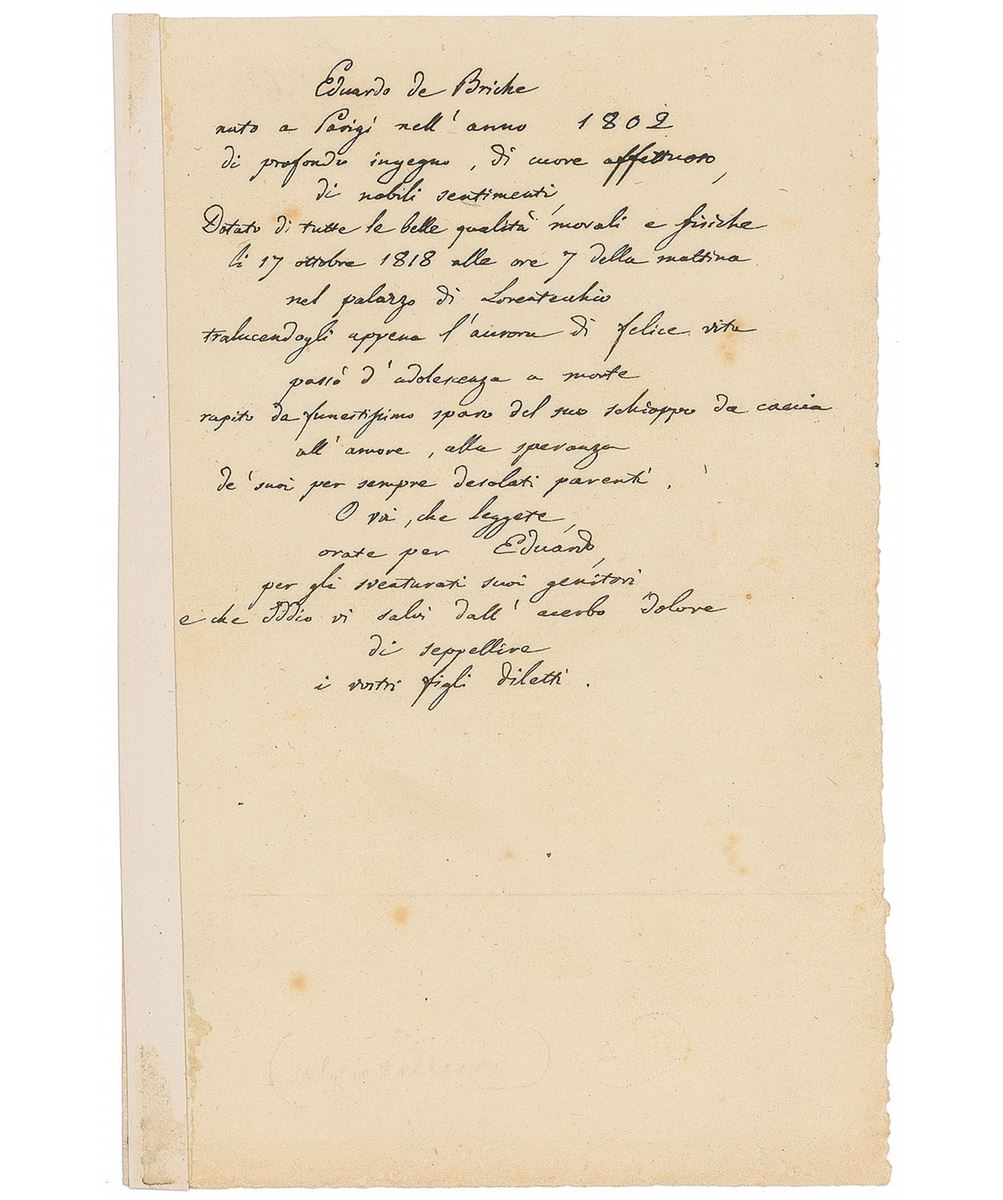 Eduardo de Briche
nato a Parigi nell' anno 1802
di profondo ingegno, di cuore affettuoso,
di nobili sentimenti,
Dotato di tutte le belle qualità morali e fisiche
li 17 ottobre 1818 alle ore 7 della mattina
nel palazzo di Lorentechio
tralucendogli appena l'aurora di felice vita
passò d'adolescenza a morte
rapito da funestissimo sparo del suo schioppo da caccia
all' amore, alla speranza
de' suoi per sempre desolati parenti.
O voi, che leggete,
orate per Eduardo,
per gli sventurati suoi genitori
e che Iddio vi salvi dall' acerbo dolore
di seppellire
i vostri figli diletti.